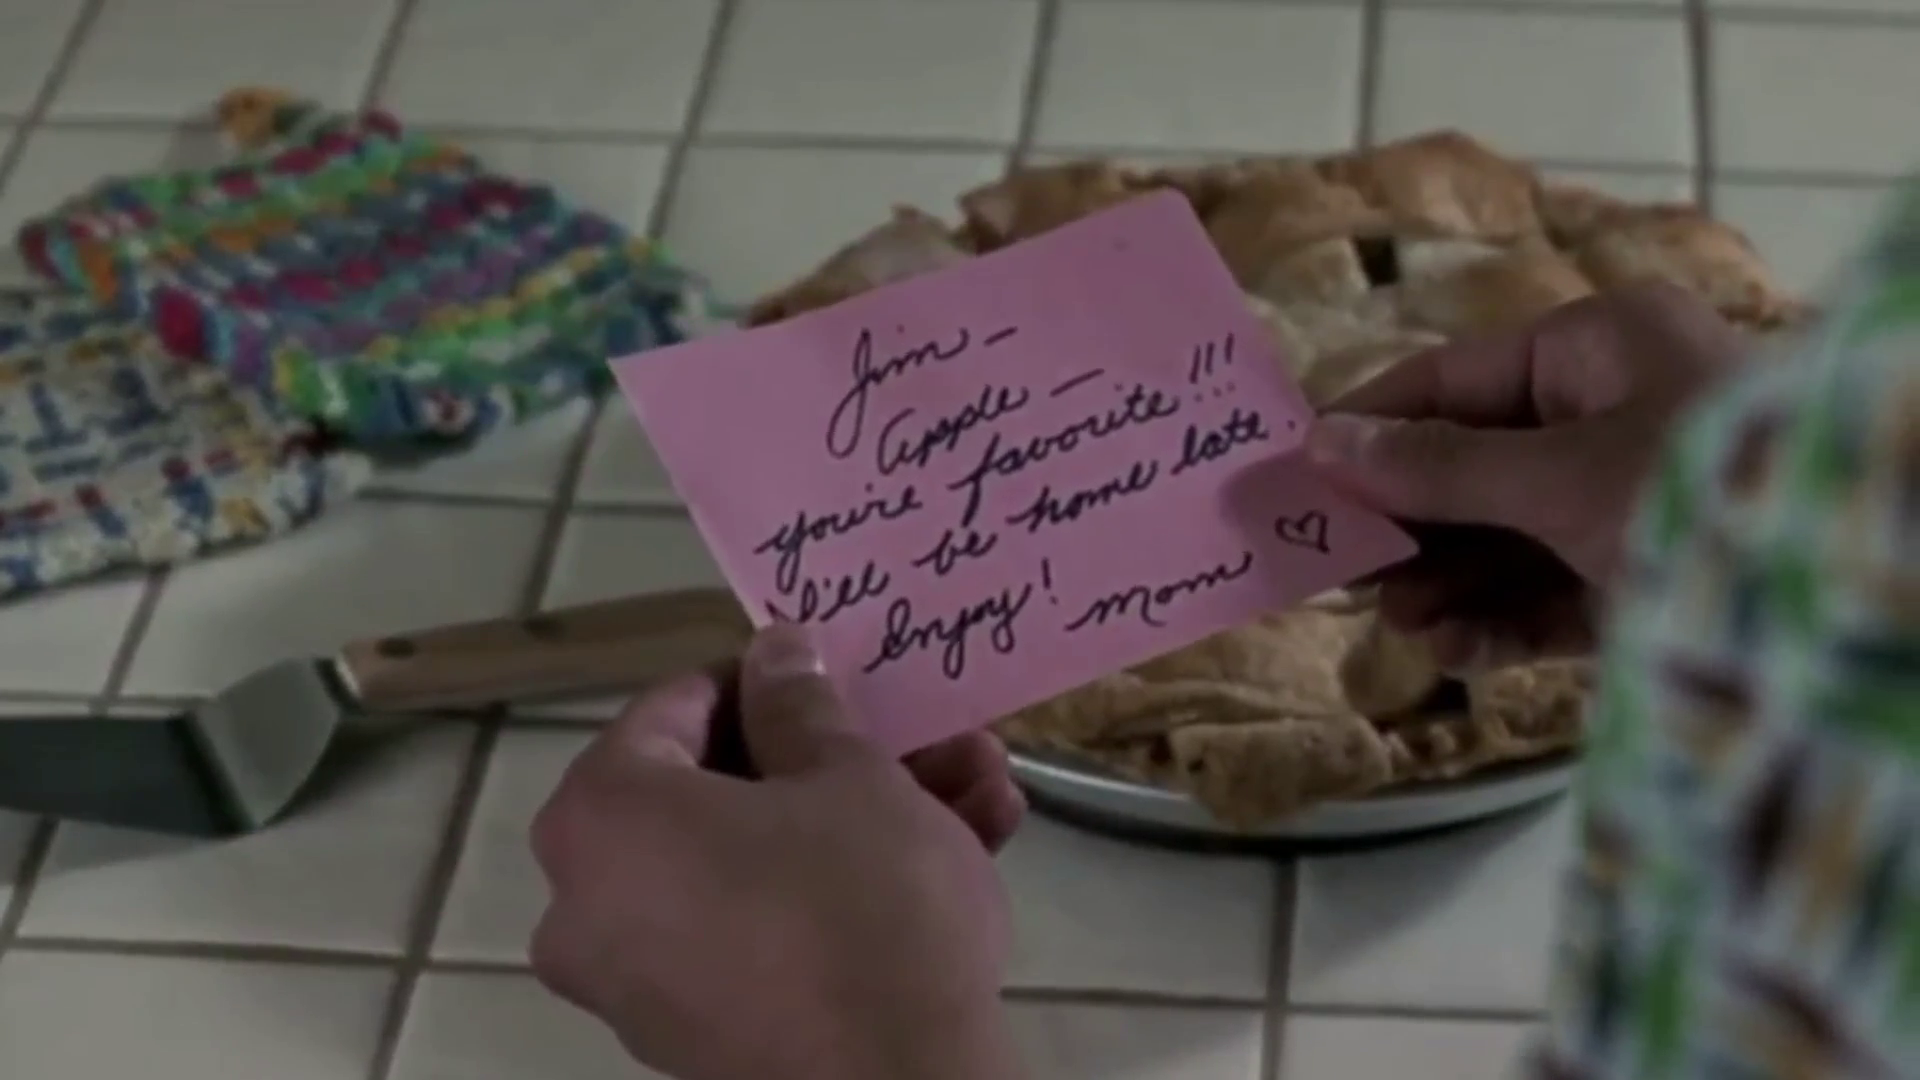 Jim—
Apple—
you're favorite!!!
I'll be home late.
Enjoy! Mom ♡